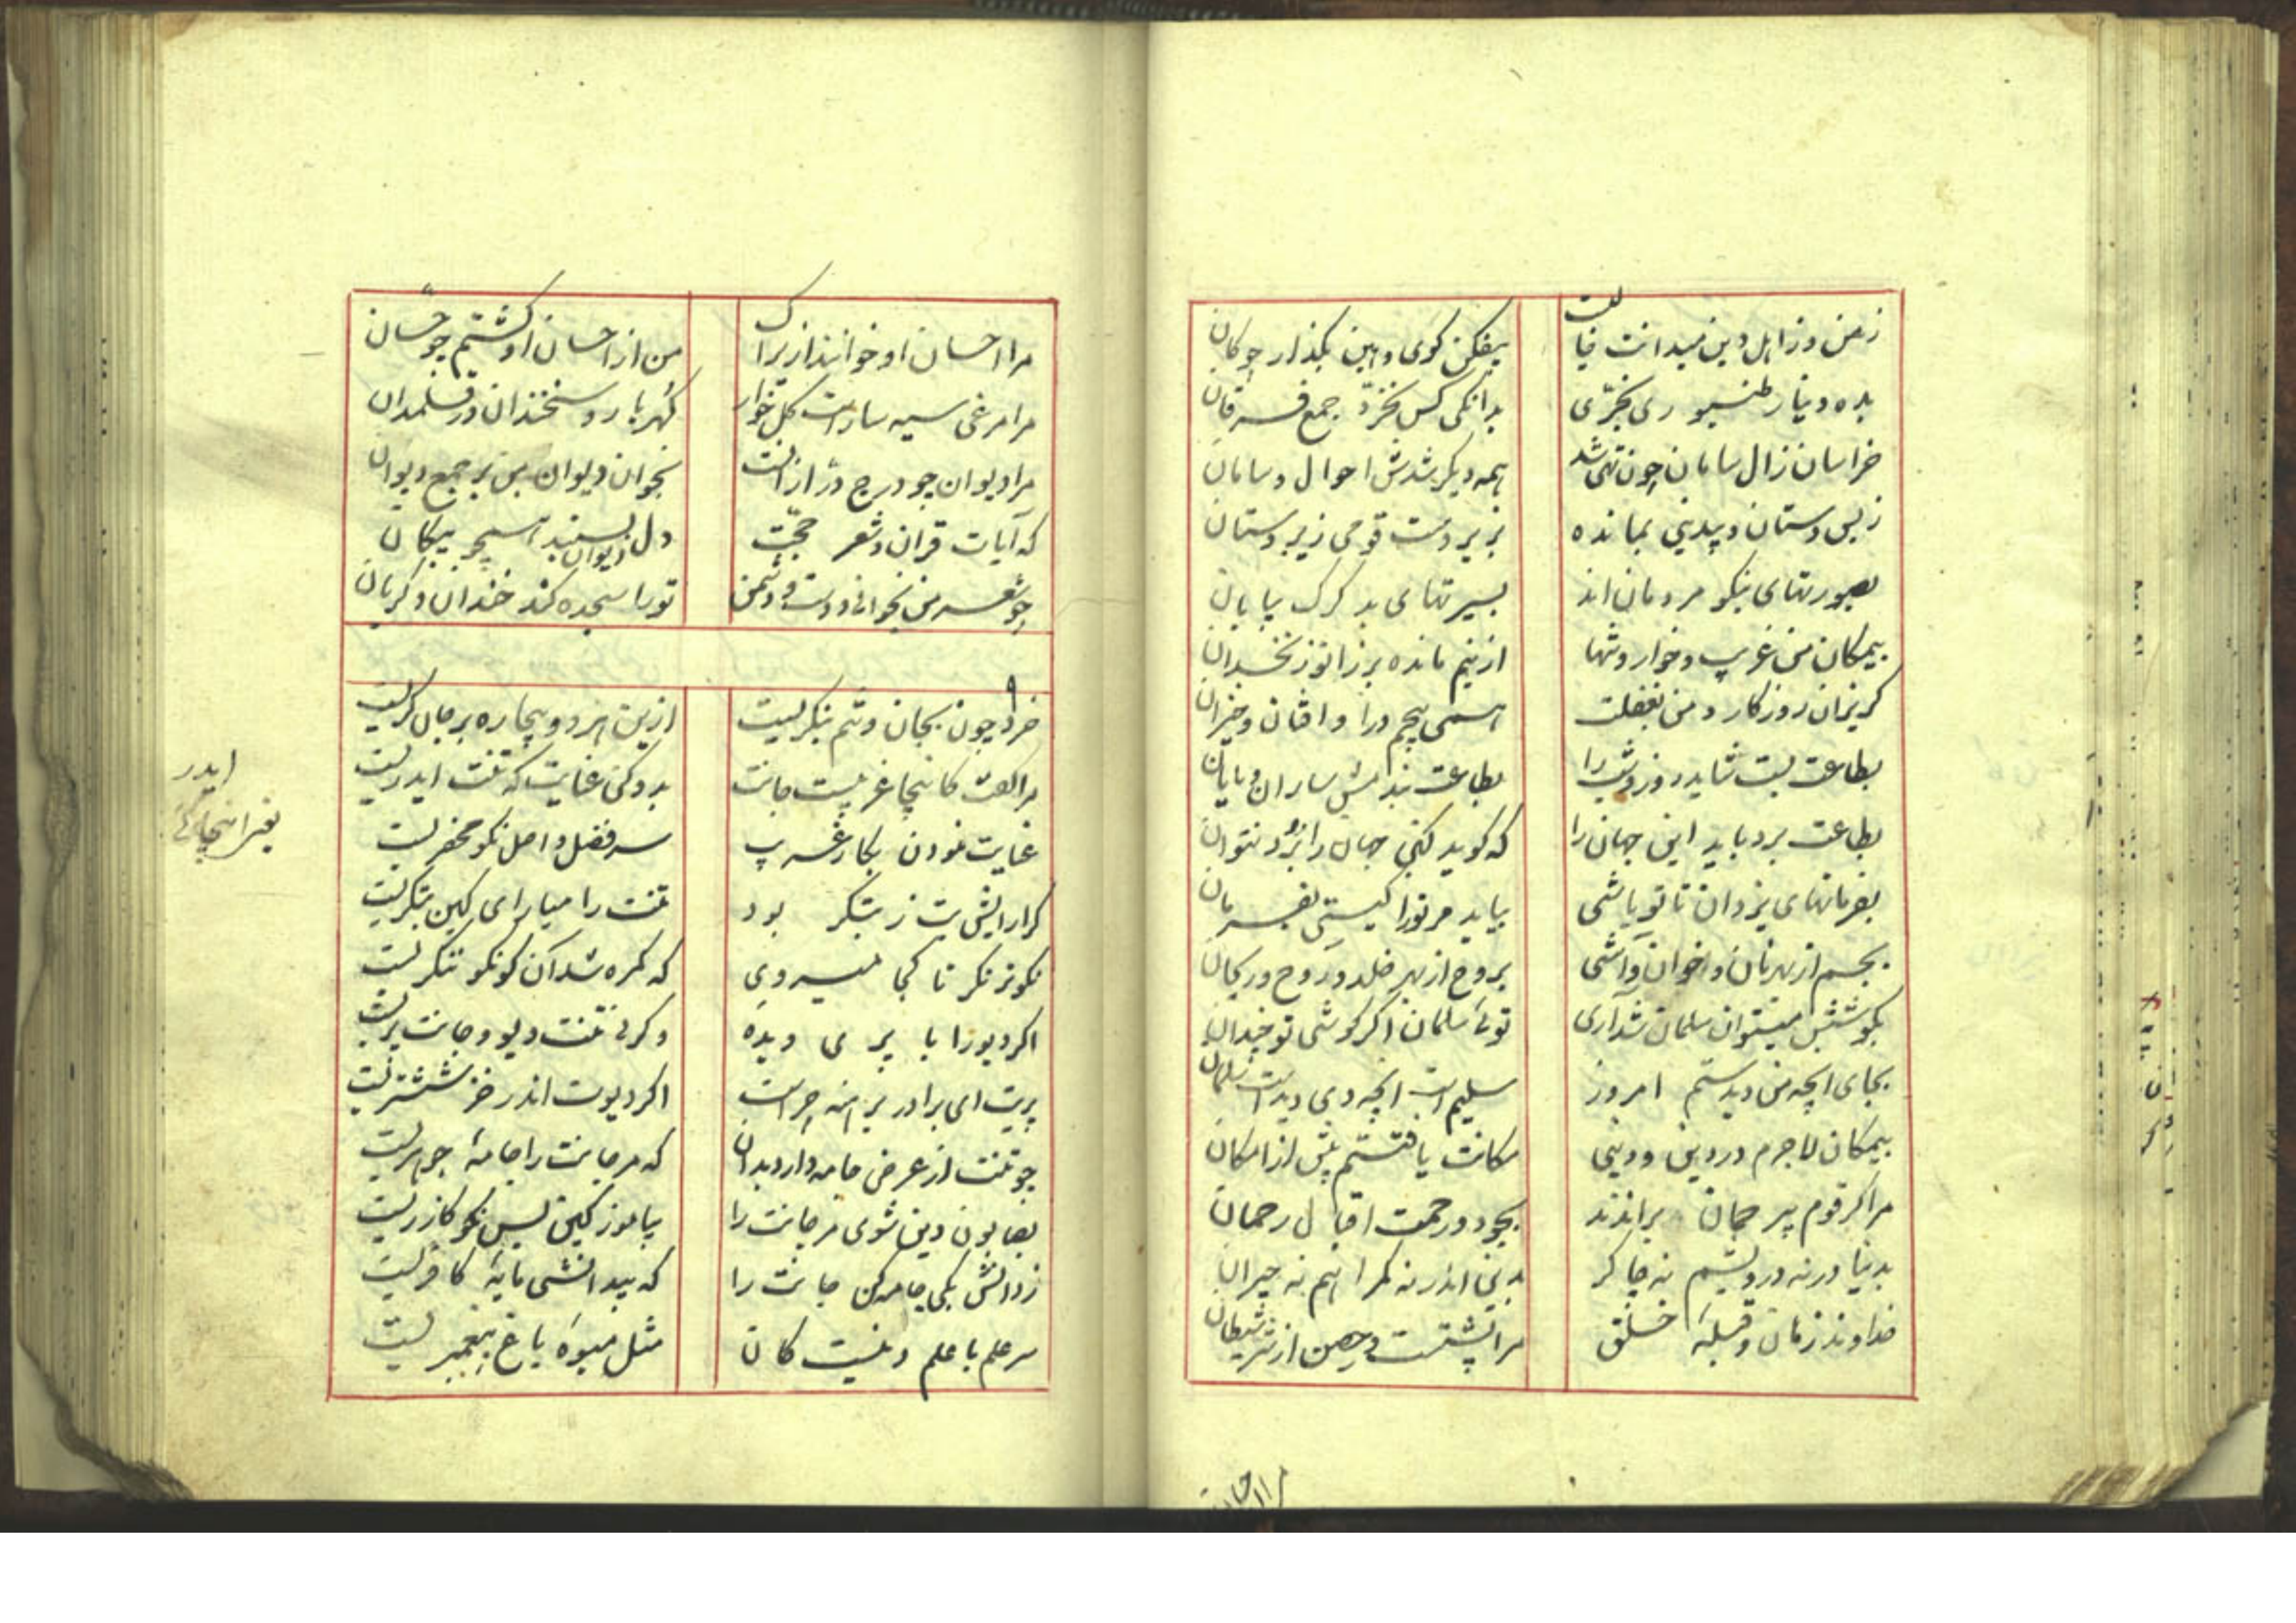 زمن وز اهل دین میدانت خالیست
بیفکن گوی واین بگذار چوکان
بده دینار طنبوری بخرّی
بدانکی کس نخرّد جمع فرقان
خراسان زال سامان چون تهی شد
همه دیکر شدش احوال و سامان
ز بس دستان و بیدینی بمانده
بزیر دست قومی زیر دستان
بصورتهای نیکو مردمان اند
بسیرتهای بد گرک بیابان
بیمکان من غریب و خوار و تنها
ازینم مانده بر زانو زنخدان
گریزان روزکار و من بغفلت
همی پیچم درا و افتان و خیزان
بطاعت بست شاید روز و شب را
بطاعت بندمش ساران و پایان
بطاعت برد باید این جهان را
که کوید کین جهان را بُرد نتوان
بفرمانهای یزدان تا تو باشی
بباید مر تورا کیتی بفرمان
بجسم از بهر نان و خوان و آشی
بروح از بهر خلد و روح و ریحان
بکوشش میتوان سلمان شد آری
توئی سلمان اگر کوشی تو چندان
بجای انچه من دیدستم امروز
سلیم است انچه دی دیدست سلمان
بیمکان لاجرم در دین و دنیی
مکانت یافتستم بیش از امکان
مرا کر قوم بیرحمان براندند
بجود و رحمت اقبال رحمان
بدنیا در نه درویشم نه چاکر
بدین اندر نه کمراهم نه حیران
خداوند زمان و قبلهٔ خلق
مرا پشتست و حصن از شر شیطان
مرا احسان
مرا احسان او خواندازیرا ک
من از احسان او کشتم چو حسّان
مرا مرغی سیه سار است کل خوار
کُهر بار و سخندان در قلمدان
مرا دیوان چو درج در از انست
بخوان دیوان من بر جمع دیوان
که آیات قران و شعر حجّت
دل دیوان بسنبد همچو پیکان
چو شعر من بخوانی دوست و دشمن
تو را سجده کند خندان و کریان
۹
خرد چون بجان و تنم بنکریست
ازین هر دو بیچاره بر جان کریست
مرا کفت کاینجا غریبست جانت
بدو کن عنایت که تنت ایدریست
عنایت نمودن بکار غریب
سر فضل و اصل نکو محضریست
کر ارایش بت ز بتکر بود
تنت را میارای کین بتکریست
نکوتر نکر تا کجا میروی
که کمره شد آن کو نکو ننکریست
اکر دیو را با پری دیدهٔ
وکر نی تنت دیو و جانت پریست
پریت ای برادر برهنه چراست
اکر دیوت اندر خز ششتریست
چو تنت از عرض جامه دارد بدان
که مر جانت را جامهٔ جوهریست
بصابون دین شوی مر جانت را
بیاموز کین بس نکو کازریست
ز دانش یکی جامه کن جانت را
که بیدانشی مایهٔ کافریست
سر علم با علم دینست کان
مثل میوهٔ باغ پیغمبریست
ایدر
یعنی اینجا